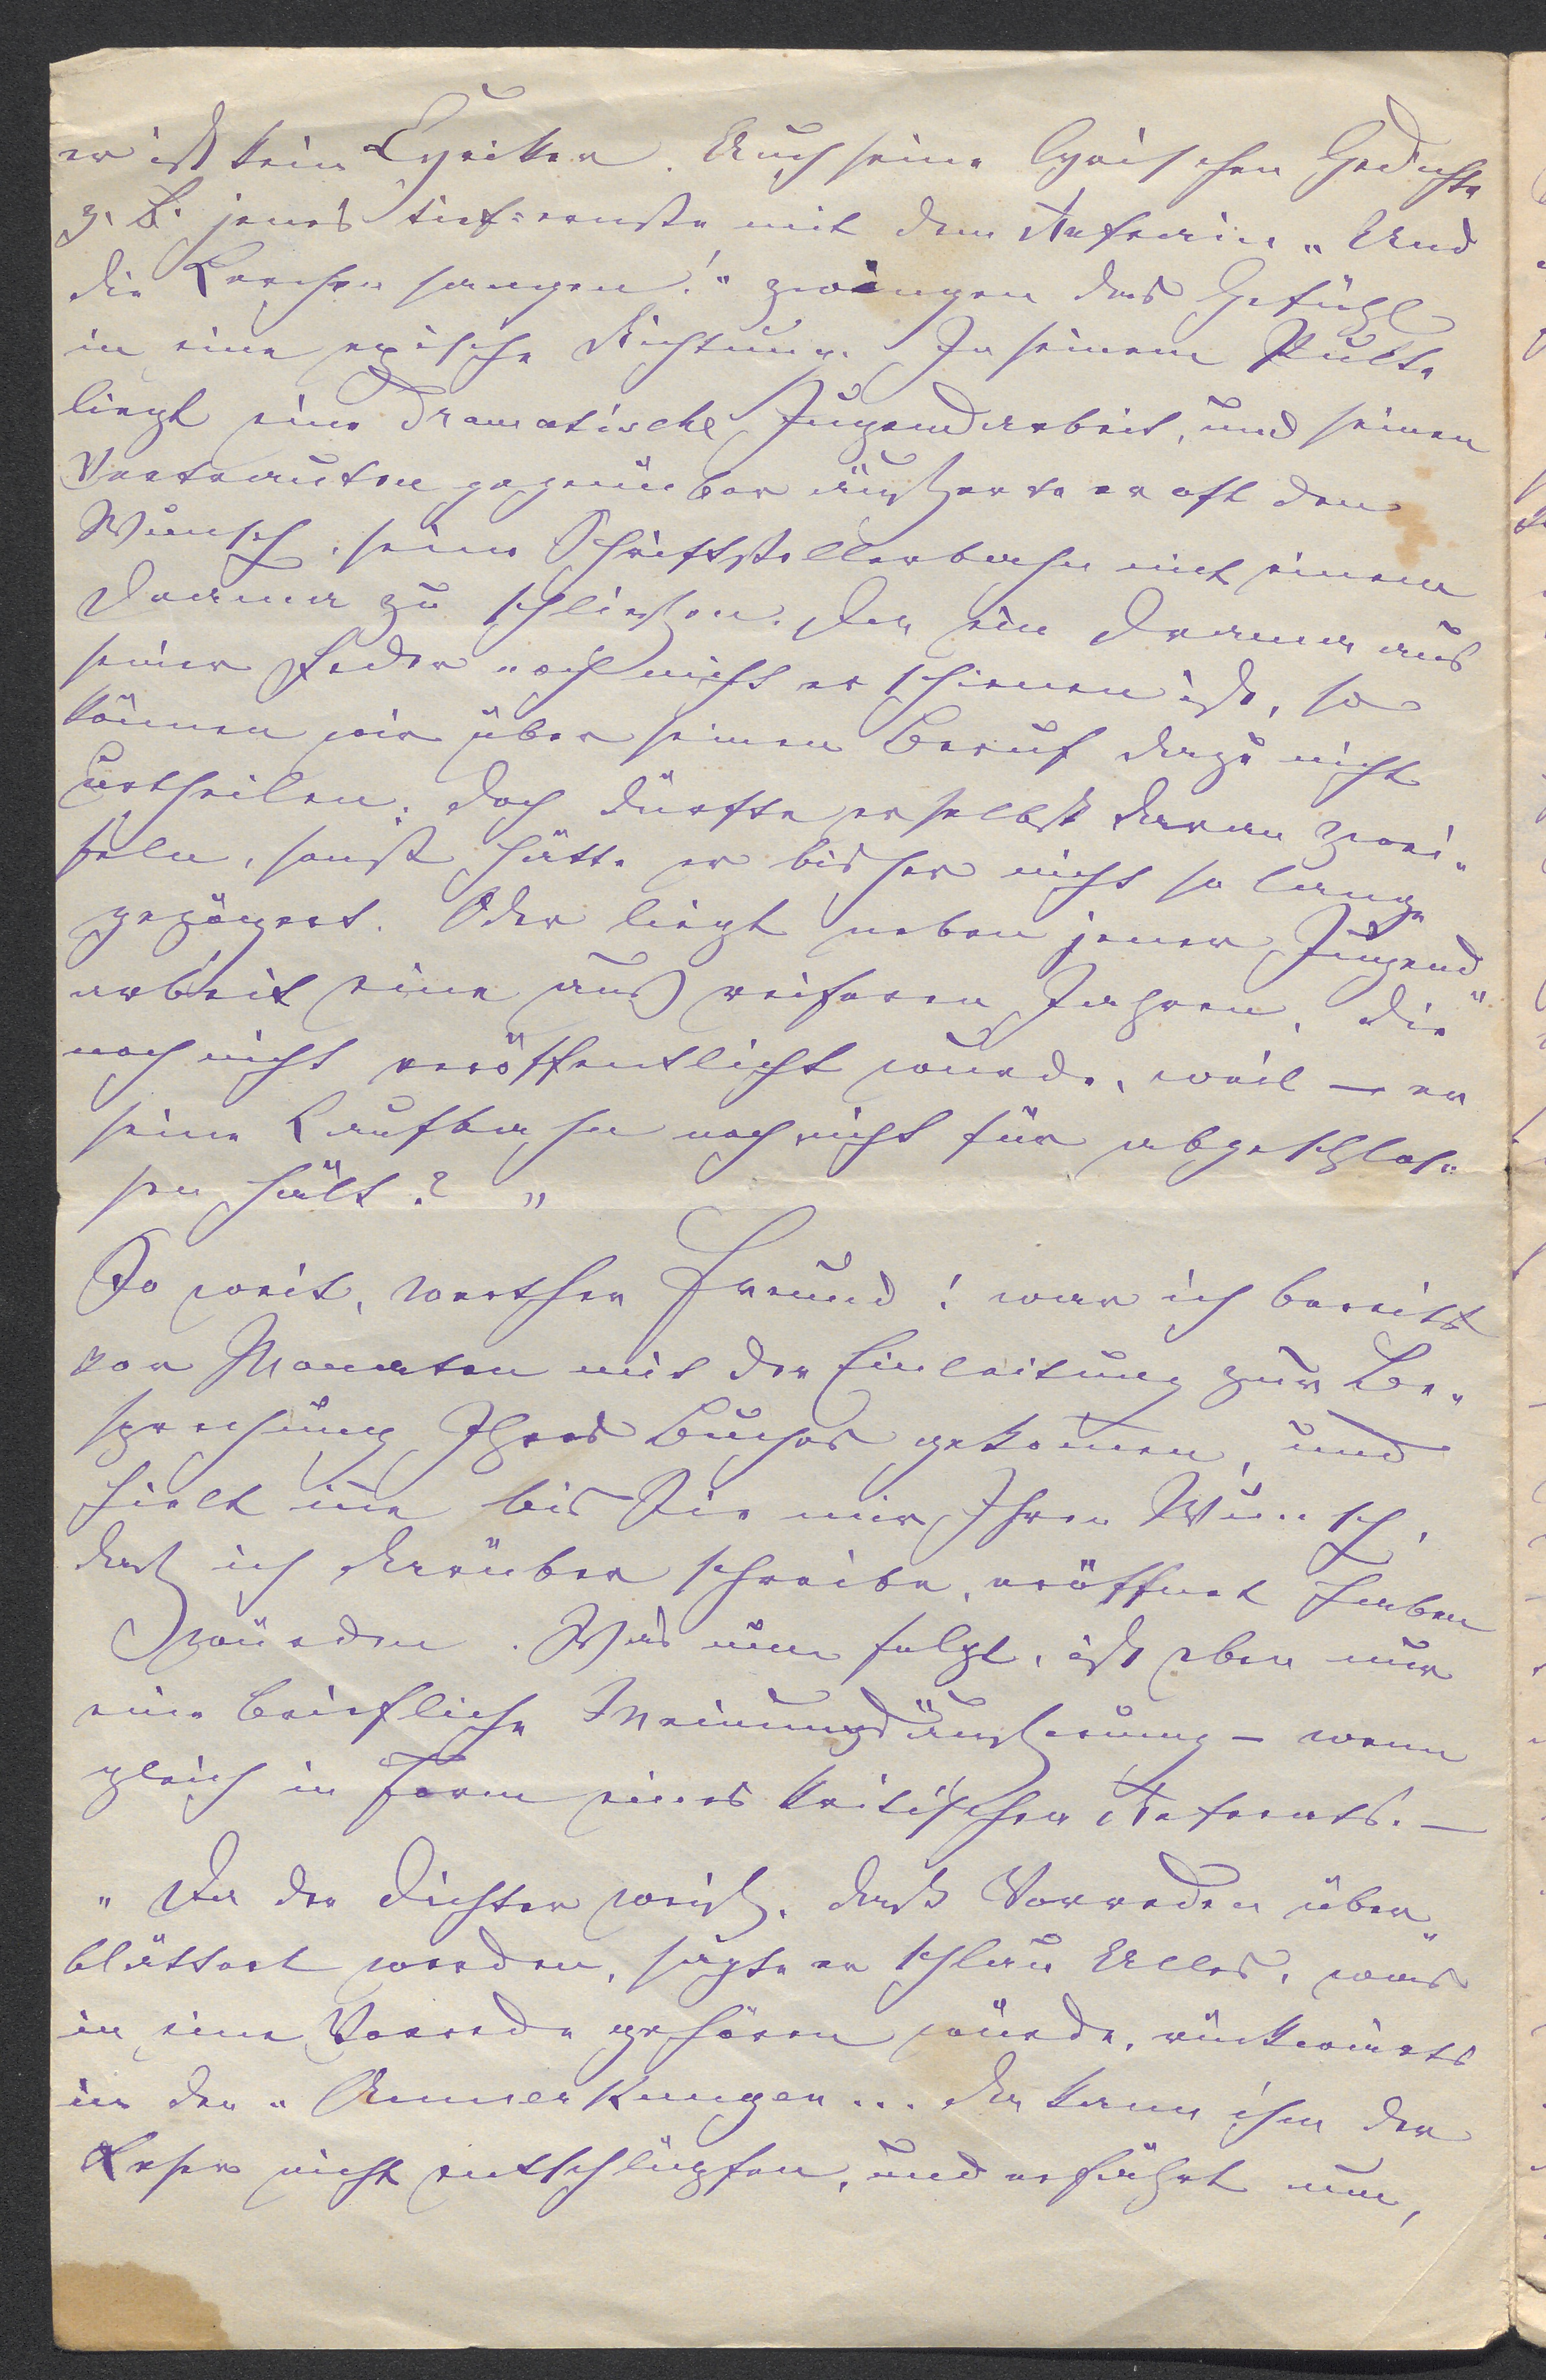 er ist kein Lyriker. Auch seine lyrischen Gedichte
z. B. jenes tief-ernste mit dem Refrain „Und
die Lerchen sangen!“ zwingen das Gefühl
in eine epische Richtung. In seinem Pulte
liegt eine dramatische Jugendarbeit, und seinen
Vertrauten gegenüber äußerte er oft den
Wunsch, seine Schriftstellerbahn mit einem
Drama zu schließen. Da ein Drama aus
seiner Feder noch nicht erschienen ist, so
können wir über seinen Beruf dazu nicht
urtheilen; doch dürfte er selbst daran zwei-
feln, sonst hätte er bisher nicht so lange
gezögert. Oder liegt neben jener Jugend-
arbeit eine aus reiferen Jahren, die
noch nicht veröffentlicht wurde, weil — er
seine Laufbahn noch nicht für abgeschlos-
sen hält? „
So weit, werther Freund! war ich bereits
vor Monaten mit der Einleitung zur Be-
sprechung Ihres Buches gekommen, und
hielt inne bis Sie mir Ihren Wunsch,
daß ich darüber schreibe, eröffnet haben
würden. Was nun folgt, ist eben nur
eine briefliche Meinungsäußerung – wenn
gleich in Form eines kritischen Referats. —
„Da der Dichter weiß, daß Vorreden über-
blättert werden, sagte er schlau Alles, was
in eine Vorrede gehören würde, rückwärts
in den „Anmerkungen ... da kann ihm der
Leser nicht entschlüpfen, und erfährt nun,